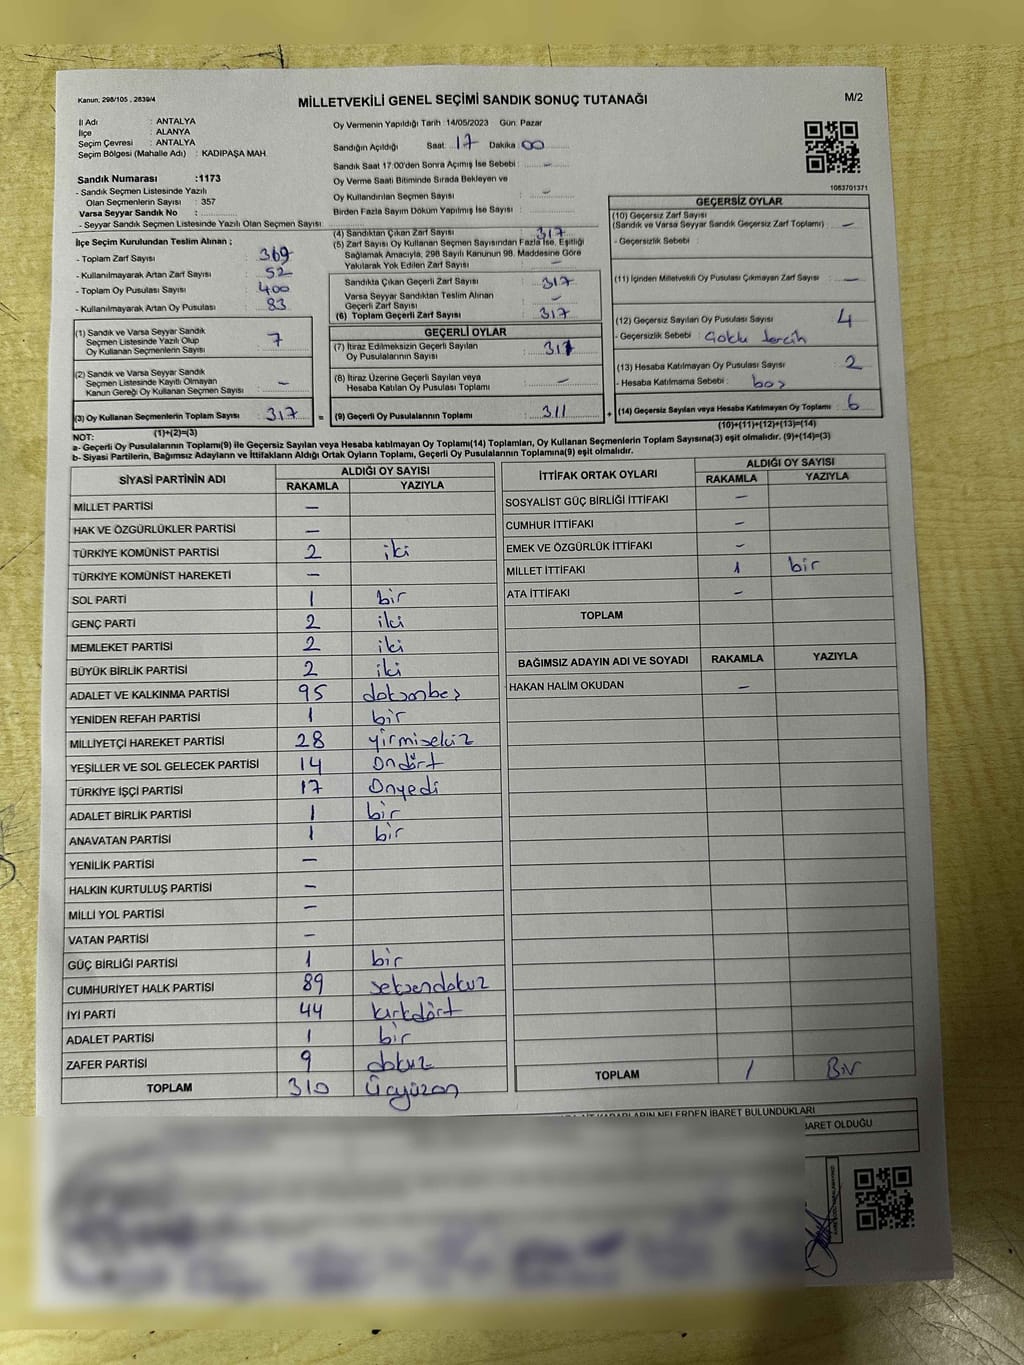 Kanun: 298/105 , 2839/4
MİLLETVEKİLİ GENEL SEÇİMİ SANDIK SONUÇ TUTANAĞI
M/2
İl Adı : ANTALYA
İlçe : ALANYA
Seçim Çevresi : ANTALYA
Seçim Bölgesi (Mahalle Adı) : KADIPAŞA MAH.
Sandık Numarası :1173
- Sandık Seçmen Listesinde Yazılı
Olan Seçmenlerin Sayısı : 357
Varsa Seyyar Sandık No :
- Seyyar Sandık Seçmen Listesinde Yazılı Olan Seçmen Sayısı
Oy Vermenin Yapıldığı Tarih : 14/05/2023 Gün: Pazar
Sandığın Açıldığı Saat: 17 Dakika: 00
Sandık Saat 17:00'den Sonra Açımış İse Sebebi : -
Oy Verme Saati Bitiminde Sırada Bekleyen ve
Oy Kullandırılan Seçmen Sayısı : -
Birden Fazla Sayım Döküm Yapılmış İse Sayısı :
1083701371
İlçe Seçim Kurulundan Teslim Alınan ;
- Toplam Zarf Sayısı : 369
- Kullanılmayarak Artan Zarf Sayısı : 52
- Toplam Oy Pusulası Sayısı : 400
- Kullanılmayarak Artan Oy Pusulası : 83
(1) Sandık ve Varsa Seyyar Sandık
Seçmen Listesinde Yazılı Olup
Oy Kullanan Seçmenlerin Sayısı : 7
(2) Sandık ve Varsa Seyyar Sandık
Seçmen Listesinde Kayıtlı Olmayan
Kanun Gereği Oy Kullanan Seçmen Sayısı : -
(3) Oy Kullanan Seçmenlerin Toplam Sayısı : 317
(1)+(2)=(3)
(4) Sandıktan Çıkan Zarf Sayısı : 317
(5) Zarf Sayısı Oy Kullanan Seçmen Sayısından Fazla İse, Eşitliği
Sağlamak Amacıyla, 298 Sayılı Kanunun 98. Maddesine Göre
Yakılarak Yok Edilen Zarf Sayısı : -
Sandıkta Çıkan Geçerli Zarf Sayısı : 317
Varsa Seyyar Sandıktan Teslim Alınan
Geçerli Zarf Sayısı : -
(6) Toplam Geçerli Zarf Sayısı : 317
GEÇERLİ OYLAR
(7) İtiraz Edilmeksizin Geçerli Sayılan
Oy Pusulalarının Sayısı : 311
(8) İtiraz Üzerine Geçerli Sayılan veya
Hesaba Katılan Oy Pusulası Toplamı : -
= (9) Geçerli Oy Pusulalarının Toplamı : 311
GEÇERSİZ OYLAR
(10) Geçersiz Zarf Sayısı
(Sandık ve Varsa Seyyar Sandık Geçersiz Zarf Toplamı) : -
- Geçersizlik Sebebi :
(11) İçinden Milletvekili Oy Pusulası Çıkmayan Zarf Sayısı : -
(12) Geçersiz Sayılan Oy Pusulası Sayısı : 4
- Geçersizlik Sebebi : Çoklu tercih
(13) Hesaba Katılmayan Oy Pusulası Sayısı : 2
- Hesaba Katılmama Sebebi : boş
+ (14) Geçersiz Sayılan veya Hesaba Katılmayan Oy Toplamı : 6
(10)+(11)+(12)+(13)=(14)
NOT:
a- Geçerli Oy Pusulalarının Toplamı(9) ile Geçersiz Sayılan veya Hesaba katılmayan Oy Toplamı(14) Toplamları, Oy Kullanan Seçmenlerin Toplam Sayısına(3) eşit olmalıdır. (9)+(14)=(3)
b- Siyasi Partilerin, Bağımsız Adayların ve İttifakların Aldığı Ortak Oyların Toplamı, Geçerli Oy Pusulalarının Toplamına(9) eşit olmalıdır.
SİYASİ PARTİNİN ADI ALDIĞI OY SAYISI
RAKAMLA YAZIYLA
MİLLET PARTİSİ -
HAK VE ÖZGÜRLÜKLER PARTİSİ -
TÜRKİYE KOMÜNİST PARTİSİ 2 iki
TÜRKİYE KOMÜNİST HAREKETİ -
SOL PARTİ 1 bir
GENÇ PARTİ 2 iki
MEMLEKET PARTİSİ 2 iki
BÜYÜK BİRLİK PARTİSİ 2 iki
ADALET VE KALKINMA PARTİSİ 95 doksanbeş
YENİDEN REFAH PARTİSİ 1 bir
MİLLİYETÇİ HAREKET PARTİSİ 28 yirmisekiz
YEŞİLLER VE SOL GELECEK PARTİSİ 14 Ondört
TÜRKİYE İŞÇİ PARTİSİ 17 Onyedi
ADALET BİRLİK PARTİSİ 1 bir
ANAVATAN PARTİSİ 1 bir
YENİLİK PARTİSİ -
HALKIN KURTULUŞ PARTİSİ -
MİLLİ YOL PARTİSİ -
VATAN PARTİSİ -
GÜÇ BİRLİĞİ PARTİSİ 1 bir
CUMHURİYET HALK PARTİSİ 89 seksendokuz
İYİ PARTİ 44 kırkdört
ADALET PARTİSİ 1 bir
ZAFER PARTİSİ 9 dokuz
TOPLAM 310 Üçyüzon
İTTİFAK ORTAK OYLARI ALDIĞI OY SAYISI
RAKAMLA YAZIYLA
SOSYALİST GÜÇ BİRLİĞİ İTTİFAKI -
CUMHUR İTTİFAKI -
EMEK VE ÖZGÜRLÜK İTTİFAKI -
MİLLET İTTİFAKI 1 bir
ATA İTTİFAKI -
TOPLAM
BAĞIMSIZ ADAYIN ADI VE SOYADI RAKAMLA YAZIYLA
HAKAN HALİM OKUDAN -
TOPLAM 1 Bir
KARARLARIN NELERDEN İBARET BULUNDUKLARI
İBARET OLDUĞU